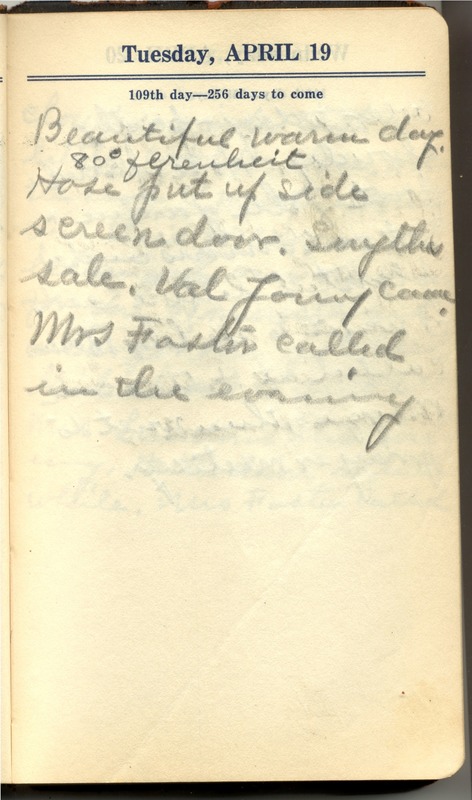 Tuesday, APRIL 19
109th day—256 days to come
Beautiful warm day.
80° ferenheit
Hose put up side
screen door. Smyths
sale. Val Young came
Mrs Foster called
in the evening